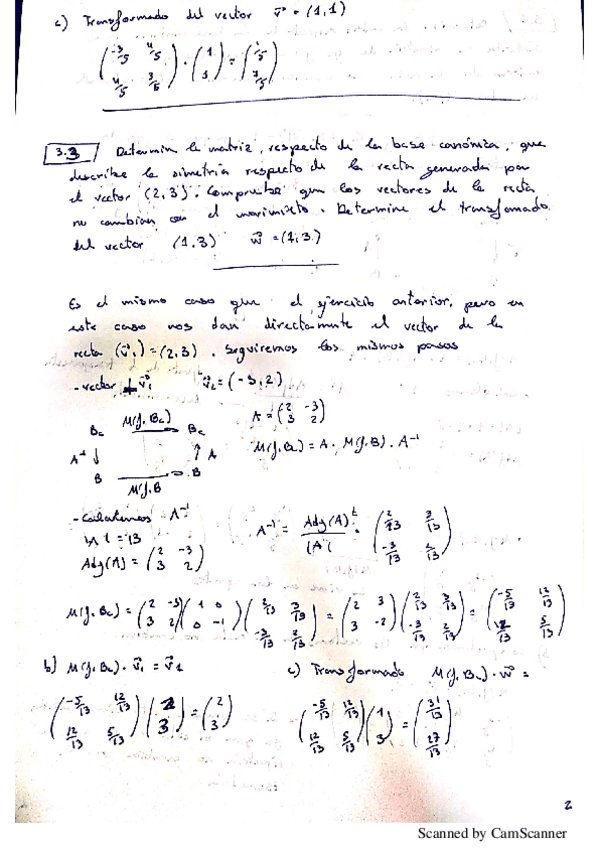 c) Transformado del vector v⃗ = (1,1)
(-3/5 4/5; 4/5 3/5) · (1; 1) = (1/5; 7/5)
3.3 Determin la matriz, respecto de la base canónica, que
describe la simetría respecto de la recta generada por
el vector (2,3). Compruebe que los vectores de la recta
no cambian con el movimiento. Determine el transformado
del vector (1,3) w⃗ = (1,3)
Es el mismo caso que el ejercicio anterior, pero en
este caso nos dan directamente el vector de la
recta (v⃗₁) = (2,3). Seguiremos los mismos pasos
- vector ⊥ v⃗₁ v⃗₂ = (-3,2)
Bc M(f,Bc) Bc A = (2 -3; 3 2)
A⁻¹ ↓ ↑ A M(f,Bc) = A · M(f,B) · A⁻¹
B → B
M(f,B
- Calculamos A⁻¹ A⁻¹ = Adj(A)ᵗ / |A| = (2/13 3/13; -3/13 2/13)
|A| = 13
Adj(A) = (2 -3; 3 2)
M(f,Bc) = (2 -3; 3 2)(1 0; 0 -1)(2/13 3/13; -3/13 2/13) = (2 3; 3 -2)(2/13 3/13; -3/13 2/13) = (-5/13 12/13; 12/13 5/13)
b) M(f,Bc) · v⃗₁ = v⃗₁ c) Transformado M(f,Bc) · w⃗ =
(-5/13 12/13; 12/13 5/13)(2; 3) = (2; 3) (-5/13 12/13; 12/13 5/13)(1; 3) = (31/13; 27/13)
2
Scanned by CamScanner